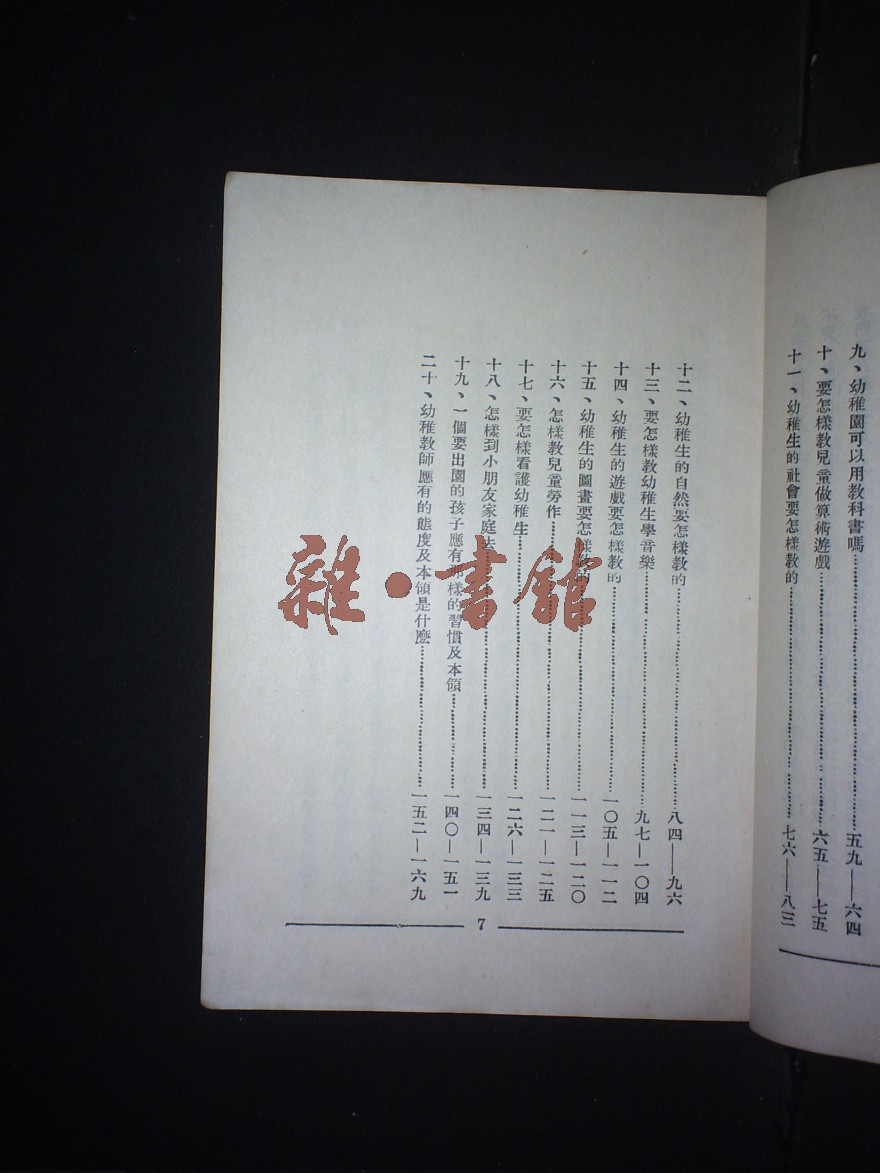 九、幼稚園可以用教科書嗎……五九——六四
十、要怎樣教兒童做算術遊戲……六五——七五
十一、幼稚生的社會要怎樣教的……七六——八三
十二、幼稚生的自然要怎樣教的……八四——九六
十三、要怎樣教幼稚生學音樂……九七—一〇四
十四、幼稚生的遊戲要怎樣教的……一〇五—一一二
十五、幼稚生的圖畫要怎樣教的……一一三—一二〇
十六、怎樣教兒童勞作……一二一—一二五
十七、要怎樣看護幼稚生……一二六—一三三
十八、怎樣到小朋友家庭去……一三四—一三九
十九、一個要出園的孩子應有那樣的習慣及本領……一四〇—一五一
二十、幼稚教師應有的態度及本領是什麼……一五二—一六九
7
雜·書館